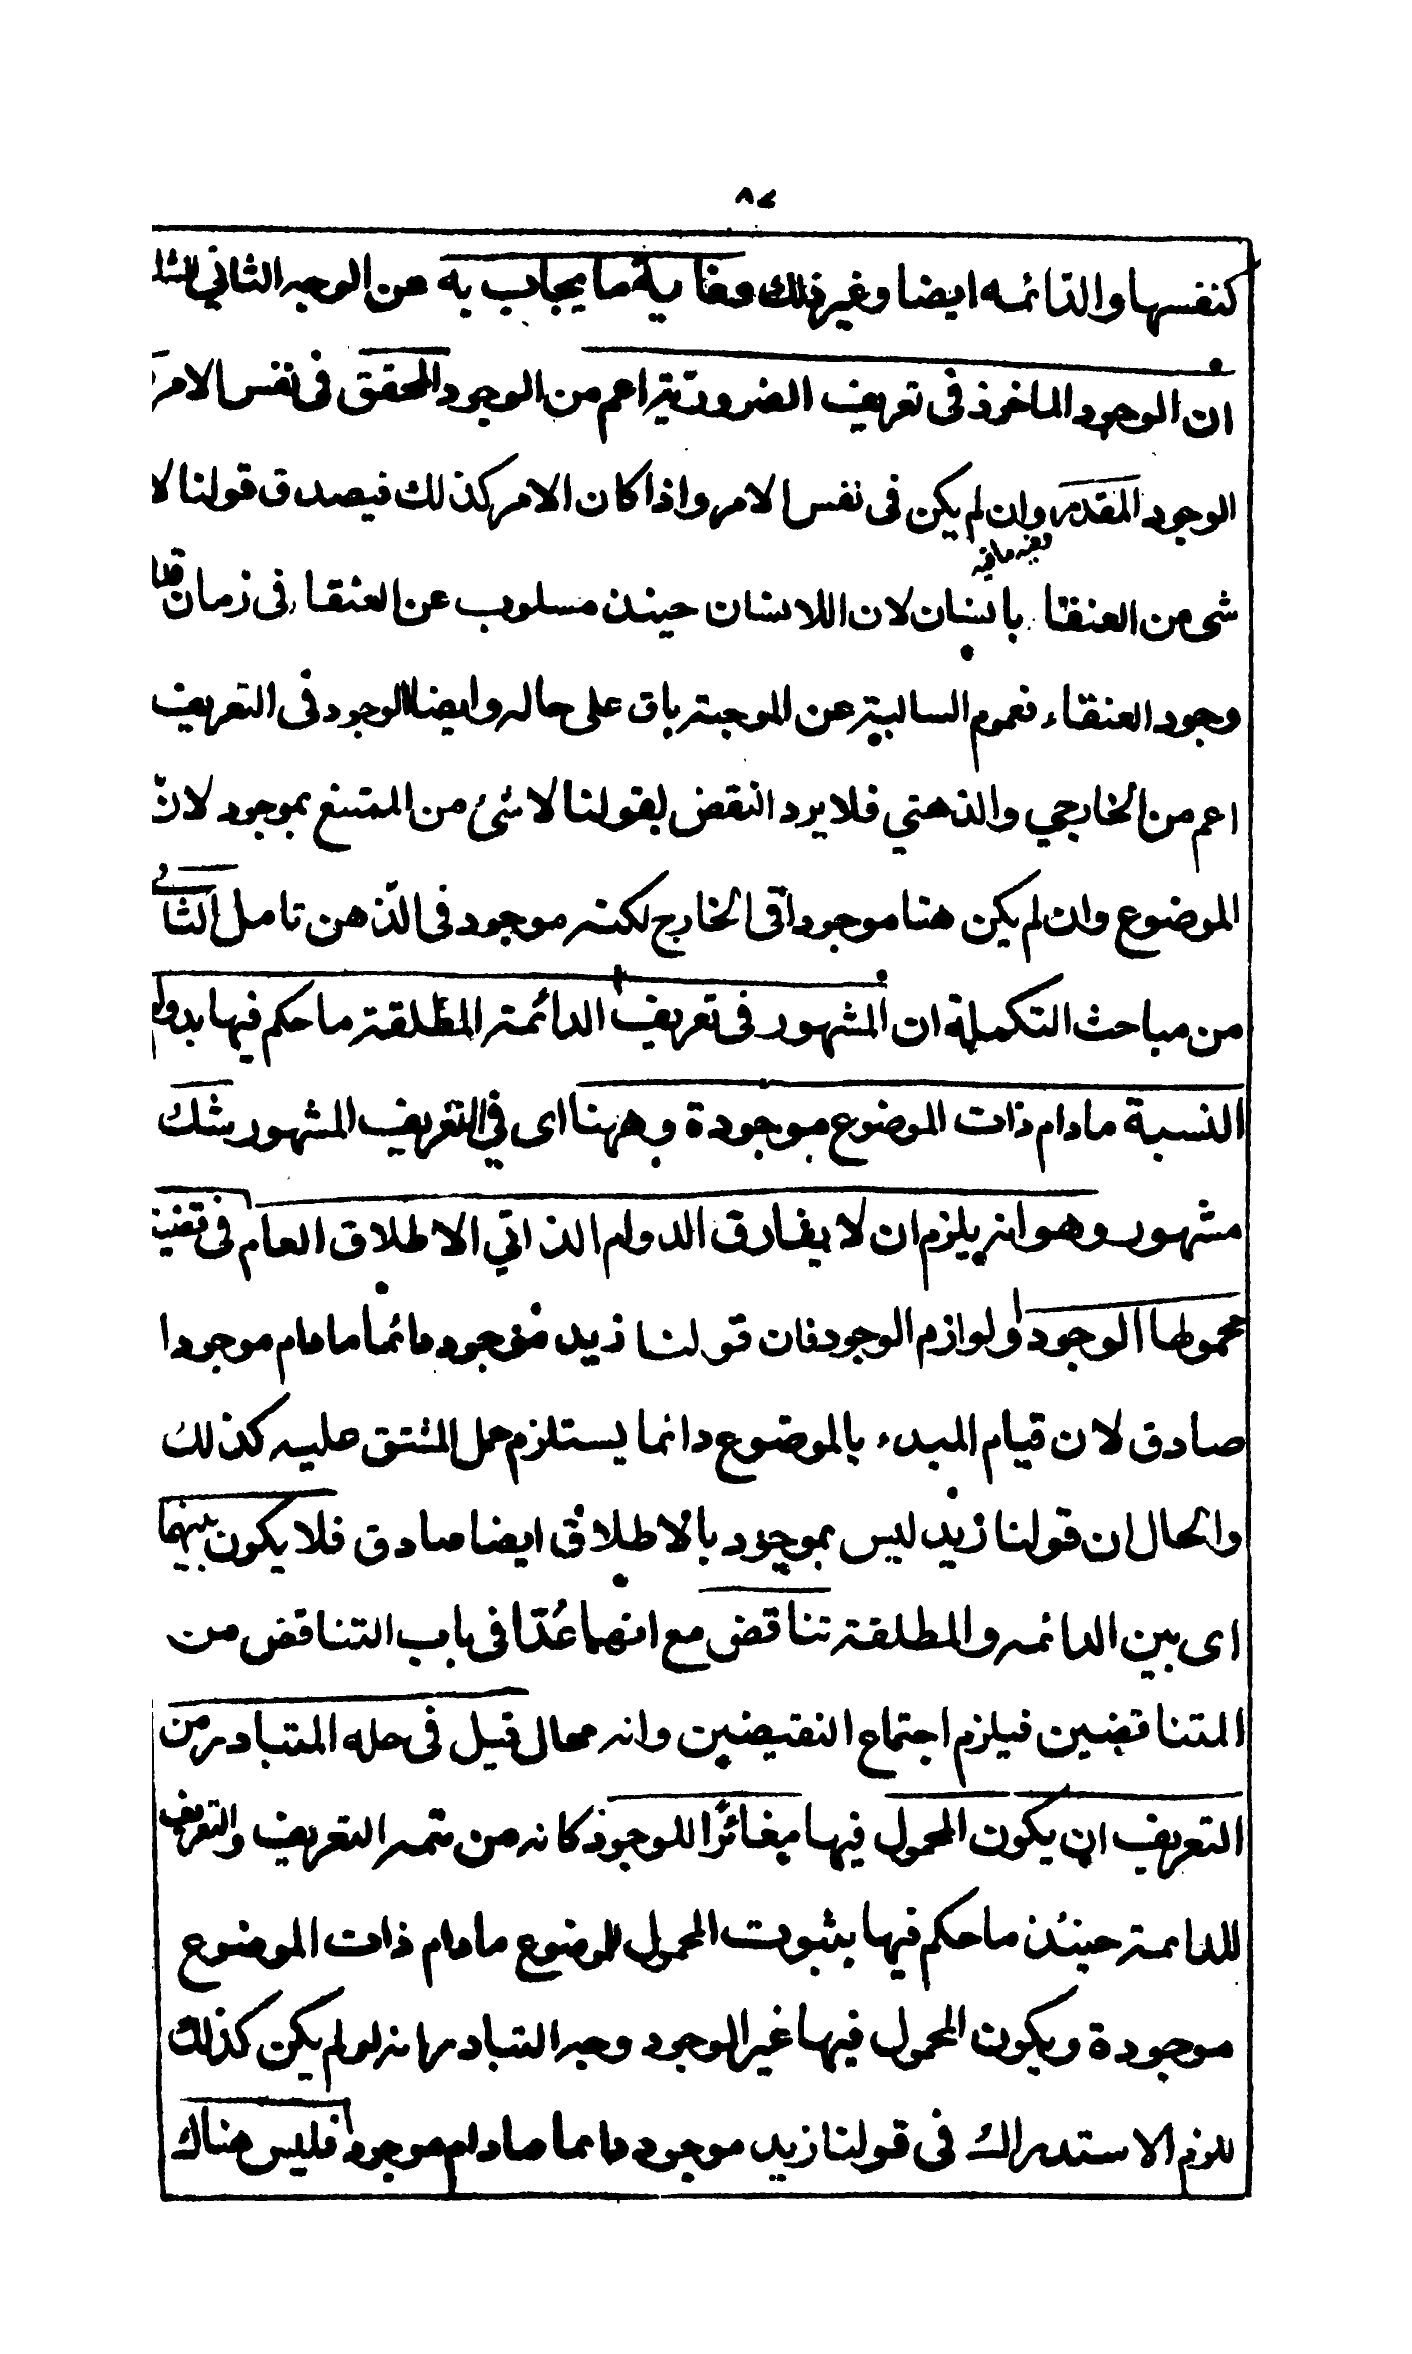 ٨٧
كنفسها والدائمه ايضا وغير ذلك وغاية ما يجاب به عن الوجه الثاني
ان الوجود الماخوذ في تعريف الضرورية اعم من الوجود المحقق في نفس الامر
الوجود المقدر وان لم يكن في نفس الامر واذا كان الامر كذلك فيصدق قولنا لا
وفيه مافيه
شئ من العنقا بانسان لان اللانسان حينئذ مسلوب عن العنقا في زمان
وجود العنقاء فعموم السالبة عن الموجبة باق على حاله وايضا الوجود في التعريف
اعم من الخارجي والذهني فلا يرد النقض بقولنا لا شئ من الممتنع بموجود لانّ
الموضوع وان لم يكن هنا موجودا في الخارج لكنه موجود في الذهن تامل الثاني
من مباحث التكملة ان المشهور في تعريف الدائمة المطلقة ما حكم فيها بدوام
النسبة مادام ذات الموضوع موجودة وههنا اى في التعريف المشهور شك
مشهور وهو انه يلزم ان لا يفارق الدوام الذاتي الاطلاق العام في قضية
محمولها الوجود او لوازم الوجود فان قولنا زيد موجود دائما مادام موجودا
صادق لان قيام المبدء بالموضوع دائما يستلزم حمل المشتق عليه كذلك
والحال ان قولنا زيد ليس بموجود بالاطلاق ايضا صادق فلا يكون بينهما
اى بين الدائمه والمطلقة تناقض مع انهما عُدّا في باب التناقض من
المتناقضين فيلزم اجتماع النقيضين وانه محال قيل في حله المتبادر من
التعريف ان يكون المحمول فيها مغائرًا للوجود كانه من تتمه التعريف والتعريف
للدائمة حينئذ ما حكم فيها بثبوت المحمول للموضوع مادام ذات الموضوع
موجودة ويكون المحمول فيها غير الوجود وجه التبادر انه لو لم يكن كذلك
للزم الاستدراك في قولنا زيد موجود دائما مادام موجودا فليس هناك